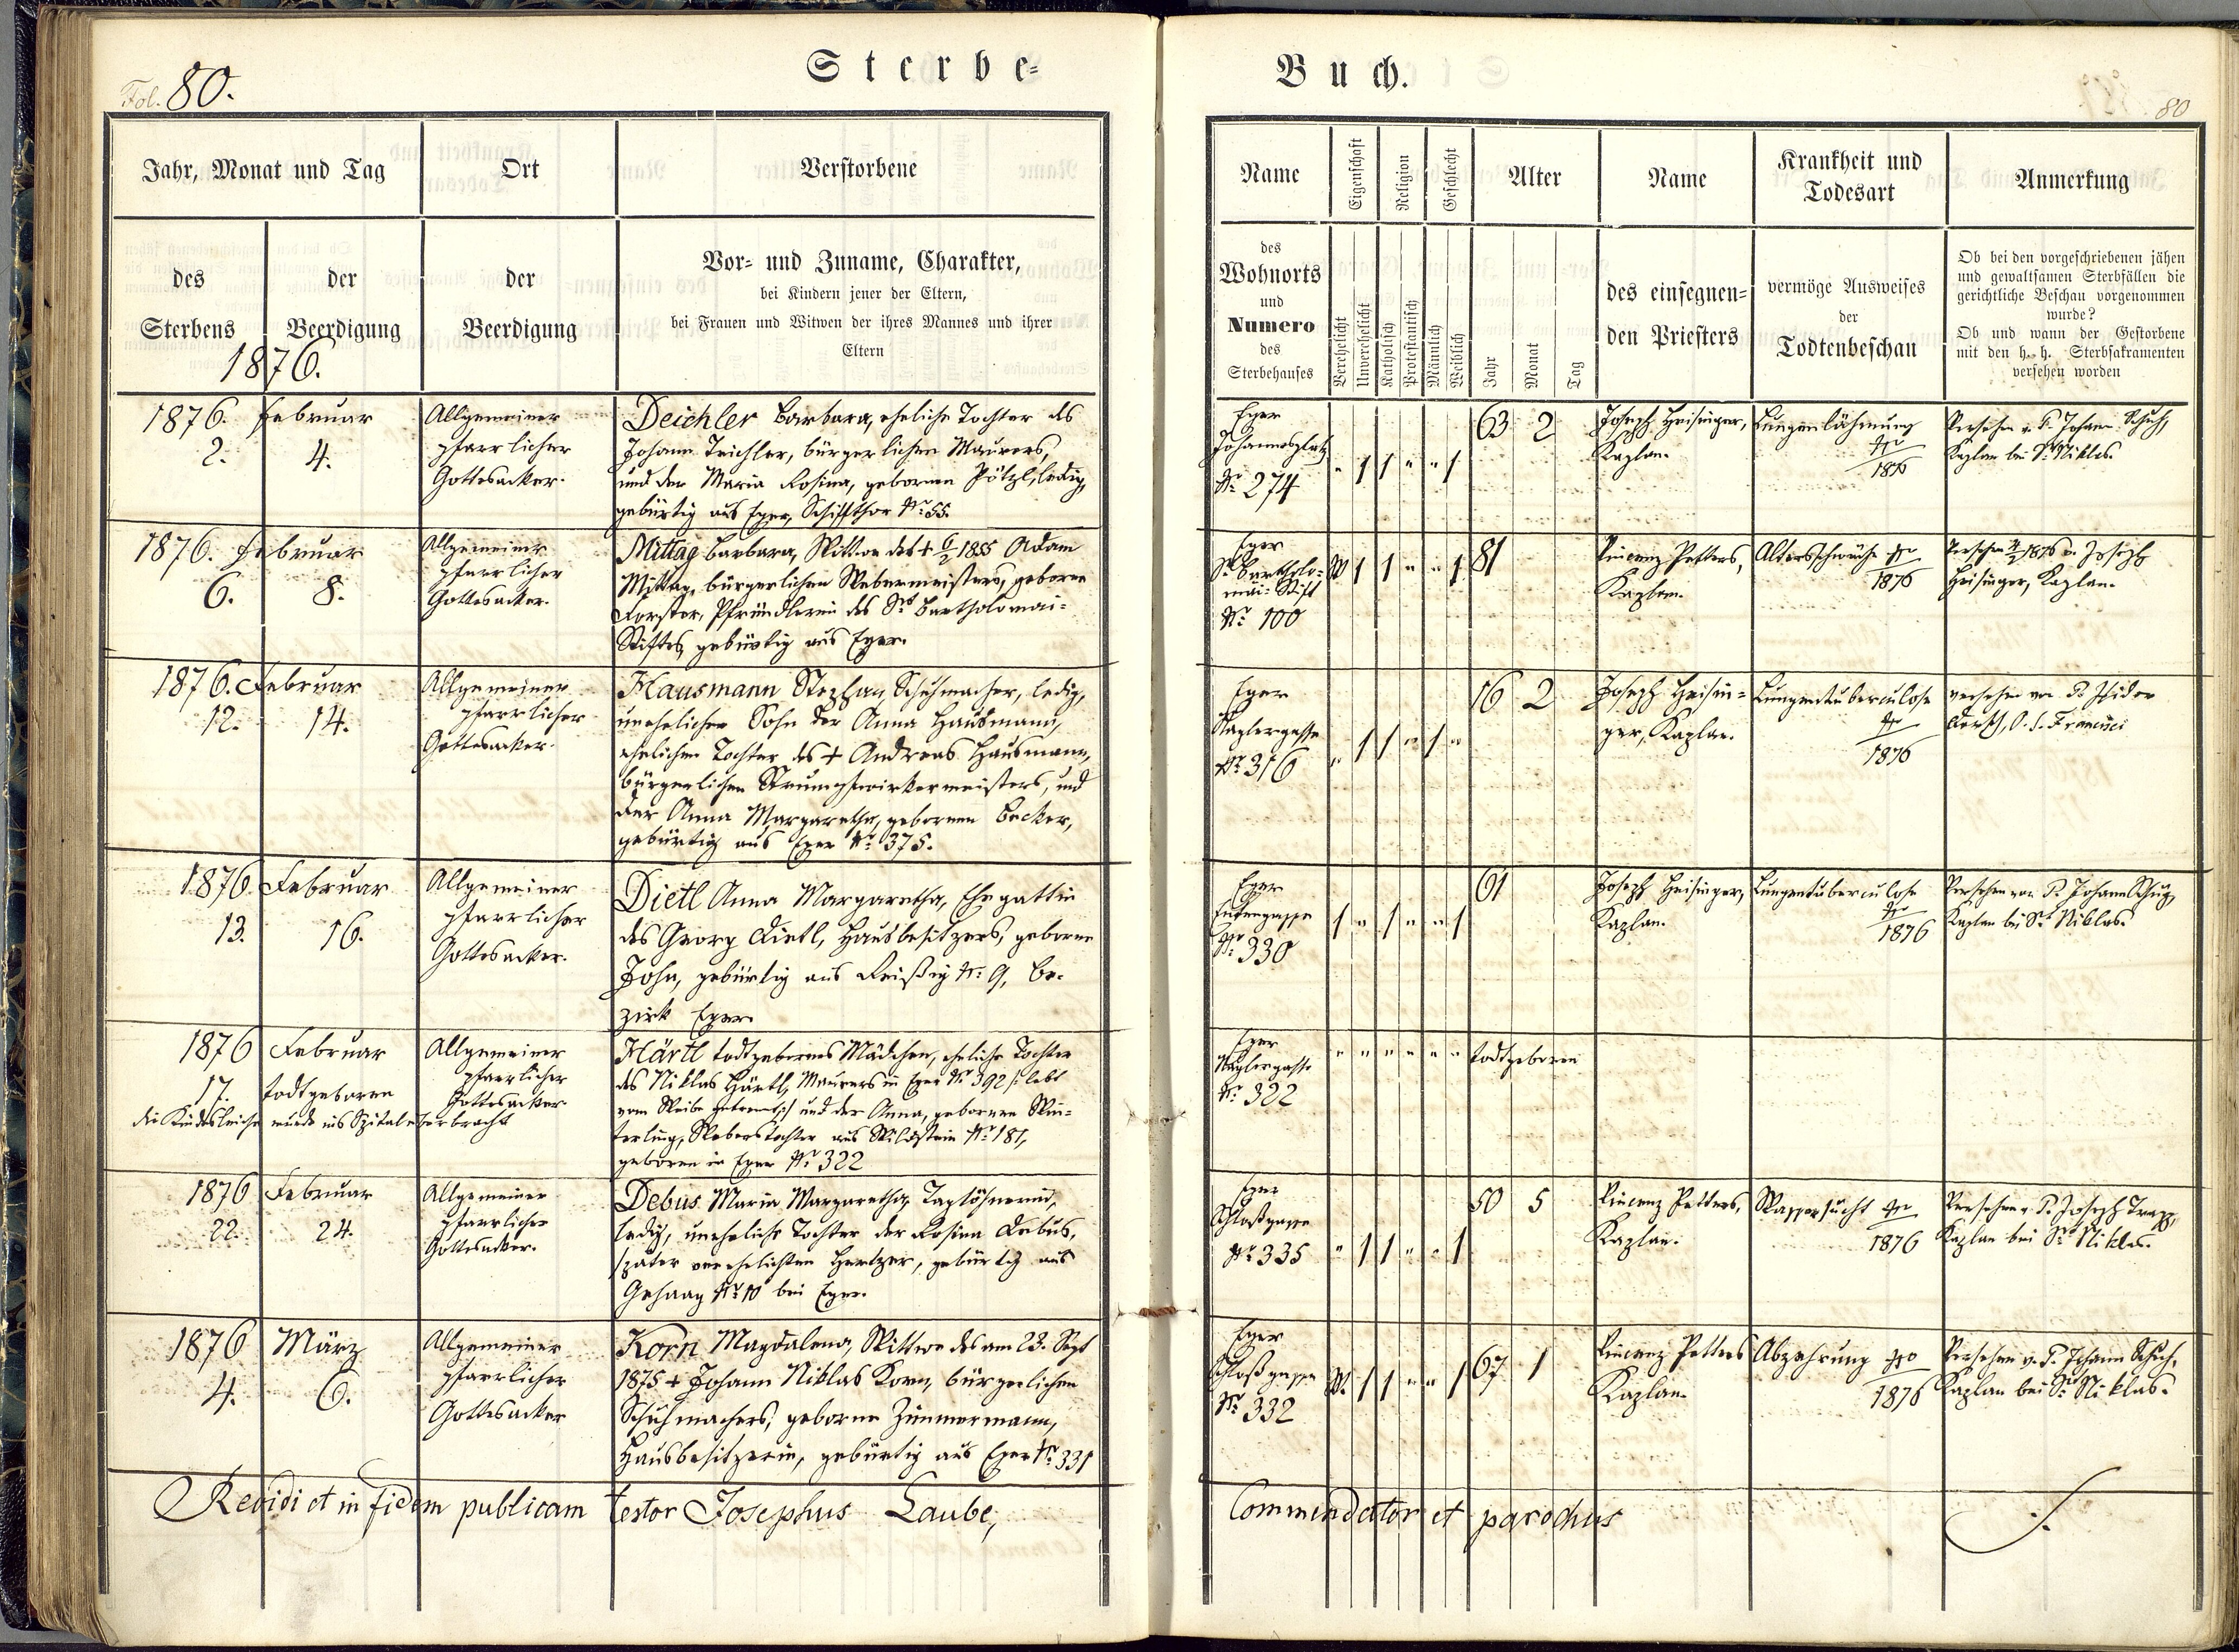 Sterbe-
Buch.
Fol. 80.
80
Jahr, Monat und Tag
Ort
Verstorbene
des Sterbens
der Beerdigung
der Beerdigung
Vor- und Zuname, Charakter,
bei Kindern jener der Eltern,
bei Frauen und Witwen der ihres Mannes und ihrer
Eltern
1876.
Name
Eigenschaft
Religion
Geschlecht
Alter
Name
Krankheit und
Todesart
Anmerkung
des
Wohnorts
und
Numero
des
Sterbehauses
Verehelicht
Unverehelicht
Katholisch
Protestantisch
Männlich
Weiblich
Jahr
Monat
Tag
des einsegnen-
den Priesters
vermöge Ausweises
der
Todtenbeschau
Ob bei den vorgeschriebenen jähen
und gewaltsamen Sterbfällen die
gerichtliche Beschau vorgenommen
wurde?
Ob und wann der Gestorbene
mit den h. h. Sterbsakramenten
versehen worden
1876. Februar
2. 4.
Allgemeiner
pfarrlicher
Gottesacker.
Deichler Barbara, eheliche Tochter des
Johann Teichler, bürgerlichen Maurers,
und der Maria Rosina, gebornen Pötzl, ledig,
gebürtig aus Eger, Schiffthor Nr. 55.
Eger
Johannesplatz
Nr. 274
" 1 1 " " 1
63 2
Joseph Heisinger,
Kaplan.
Lungenlähmung
1876
Versehen v. P. Johann Schuh,
Kaplan bei St. Niklas
1876. Februar
6. 8.
Allgemeiner
pfarrlicher
Gottesacker.
Mittag Barbara, Wittwe des + 6/2 1855 Adam
Mittag, bürgerlichen Webermeisters, geborne
Forster, Pfründlerin des St. Bartholomäi-
Stiftes, gebürtig aus Eger.
Eger
St. Bartholo-
mäi-Stift
Nr. 100
W 1 1 " " 1
81
Vincenz Petters,
Kaplan.
Altersschwäche
1876
Versehen 1876 v. Joseph
Heisinger, Kaplan.
1876. Februar
12. 14.
Allgemeiner
pfarrlicher
Gottesacker.
Hausmann Stephan, Schuhmacher, ledig,
unehelicher Sohn der Anna Hausmann,
ehelichen Tochter des + Andreas Hausmann,
bürgerlichen Strumpfwirkermeisters, und
der Anna Margaretha, gebornen Becker,
gebürtig aus Eger Nr. 375.
Eger
Nr. 316
" 1 1 " 1 "
16 2
Joseph Heisin-
ger, Kaplan.
Lungentuberculose
1876
versehen von P. Isidor
O. S. Francisci
1876 Februar
13. 16.
Allgemeiner
pfarrlicher
Gottesacker.
Dietl Anna Margaretha, Ehegattin
des Georg Dietl, Hausbesitzers, geborne
John, gebürtig aus Reißig Nr. 9, Be-
zirk Eger.
Eger
Nr. 330
1 " 1 " " 1
61
Joseph Heisinger,
Kaplan.
Lungentuberculose
1876
Versehen von P. Johann Schuh,
Kaplan bei St. Niklas.
1876 Februar
17. todtgeboren
die Kindesleiche wurde ins Spital überbracht
Allgemeiner
pfarrlicher
Gottesacker
Härtl todtgebornes Mädchen, eheliche Tochter
des Niklas Härtl, Maurers in Eger Nr. 392 /: lebt
vom Weibe getrennt :/ und der Anna, gebornen Win-
terling, Weberstochter aus Wildstein Nr. 181,
geboren in Eger Nr. 322
Eger
Nr. 322
" " " " " "
todtgeboren
1876 Februar
22. 24.
Allgemeiner
pfarrlicher
Gottesacker.
Debus Maria Margaretha, Taglöhnerin,
ledig, uneheliche Tochter der Rosina Debus,
später verehelichten Hertzer, gebürtig aus
Gehaag Nr. 10 bei Eger.
Eger
Schloßgasse
Nr. 335
" 1 1 " " 1
50 5
Vincenz Petters,
Kaplan.
Wassersucht
1876
Versehen v. P. Joseph Trapp,
Kaplan bei St. Niklas.
1876 März
4. 6.
Allgemeiner
pfarrlicher
Gottesacker
Korn Magdalena, Wittwe des am 23. Sept
1875 + Johann Niklas Korn, bürgerlichen
Schuhmachers, geborne Zimmermann,
Hausbesitzerin, gebürtig aus Eger Nr. 331
Eger
Schloßgasse
Nr. 332
W. 1 1 " " 1
67 1
Vincenz Petters
Kaplan.
Abzehrung
1876
Versehen v. P. Johann Schuh,
Kaplan bei St. Niklas.
Revidi et in fidem publicam testor Josephus Laube,
Commendator et parochus